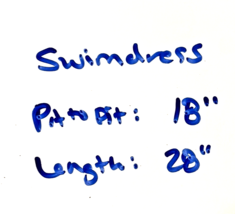 Swimdress
Pit to Pit: 18"
Length: 28"